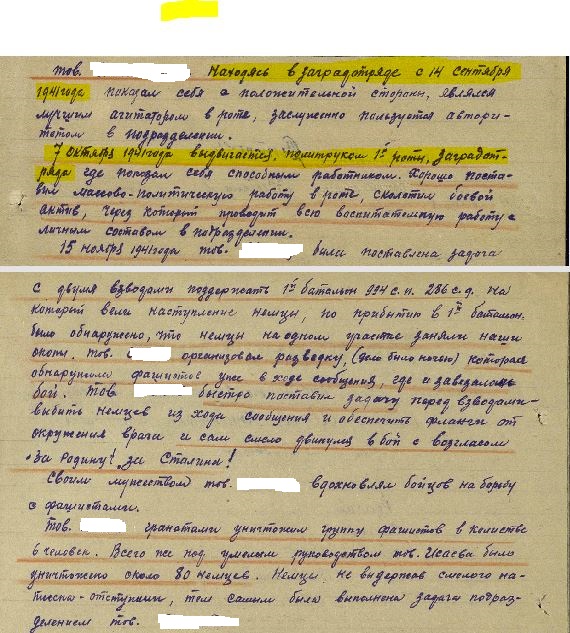 тов. Находясь в заградотряде с 14 сентября
1941 года показал себя с положительной стороны, являлся
лучшим агитатором в роте, заслуженно пользуется автори-
тетом в подразделении.
7 октября 1941 года выдвигается политруком 1й роты, заградот-
ряда где показал себя способным работником. Хорошо поста-
вил массово-политическую работу в роте, сколотил боевой
актив, через который проводит всю воспитательную работу с
личным составом в подразделении.
15 ноября 1941 года тов. была поставлена задача
с двумя взводами поддержать 1й батальон 994 с.п. 286 с.д. на
который вели наступление немцы, по прибытию в 1й батальон
было обнаружено, что немцы на одном участке заняли наши
окопы. Тов. организовал разведку, (дело было ночью) которая
обнаружила фашистов уже в ходе сообщения, где и завязался
бой. Тов. быстро поставил задачу перед взводами-
выбить немцев из хода сообщения и обеспечить фланги от
окружения врага и сам смело двинулся в бой с возгласом
"За Родину! За Сталина!
Своим мужеством тов. вдохновлял бойцов на борьбу
с фашистами.
Тов. гранатами уничтожил группу фашистов в количестве
6 человек. Всего же под умелым руководством тов. Исаева было
уничтожено около 80 немцев. Немцы не выдержав смелого на-
тиска - отступили, тем самым была выполнена задача подраз-
делением тов.